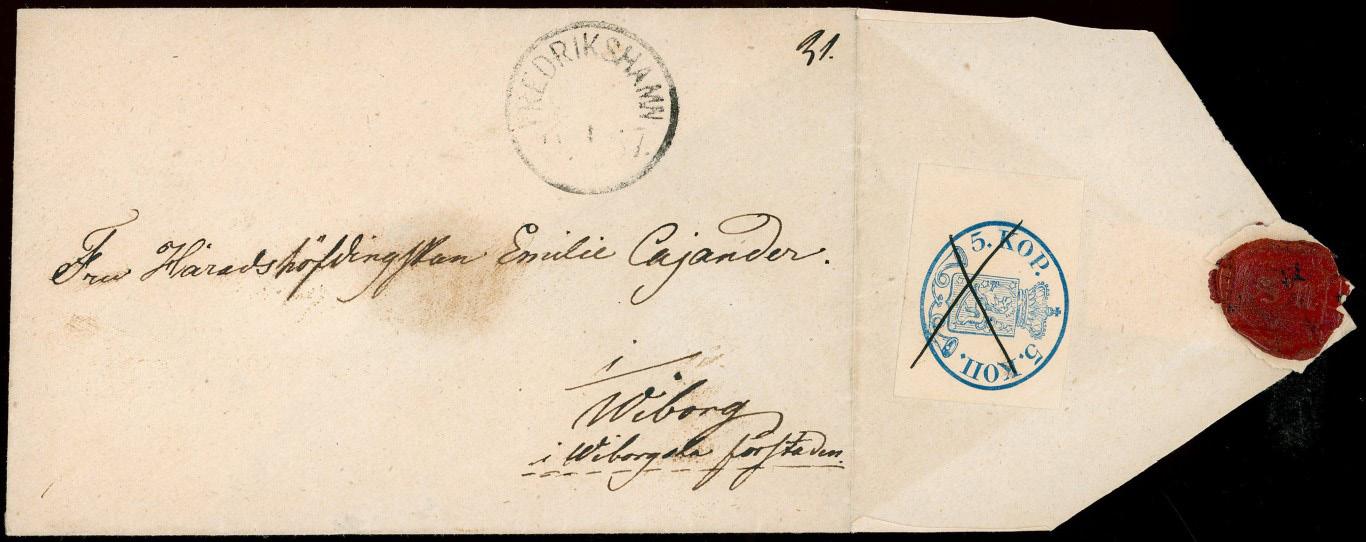 FREDRIKSHAMN
31.
Fru Häradshöfdingskan Emilie Cajander.
i
Wiborg
i Wiborgska förstaden.
5. KOP.
5. КОП.